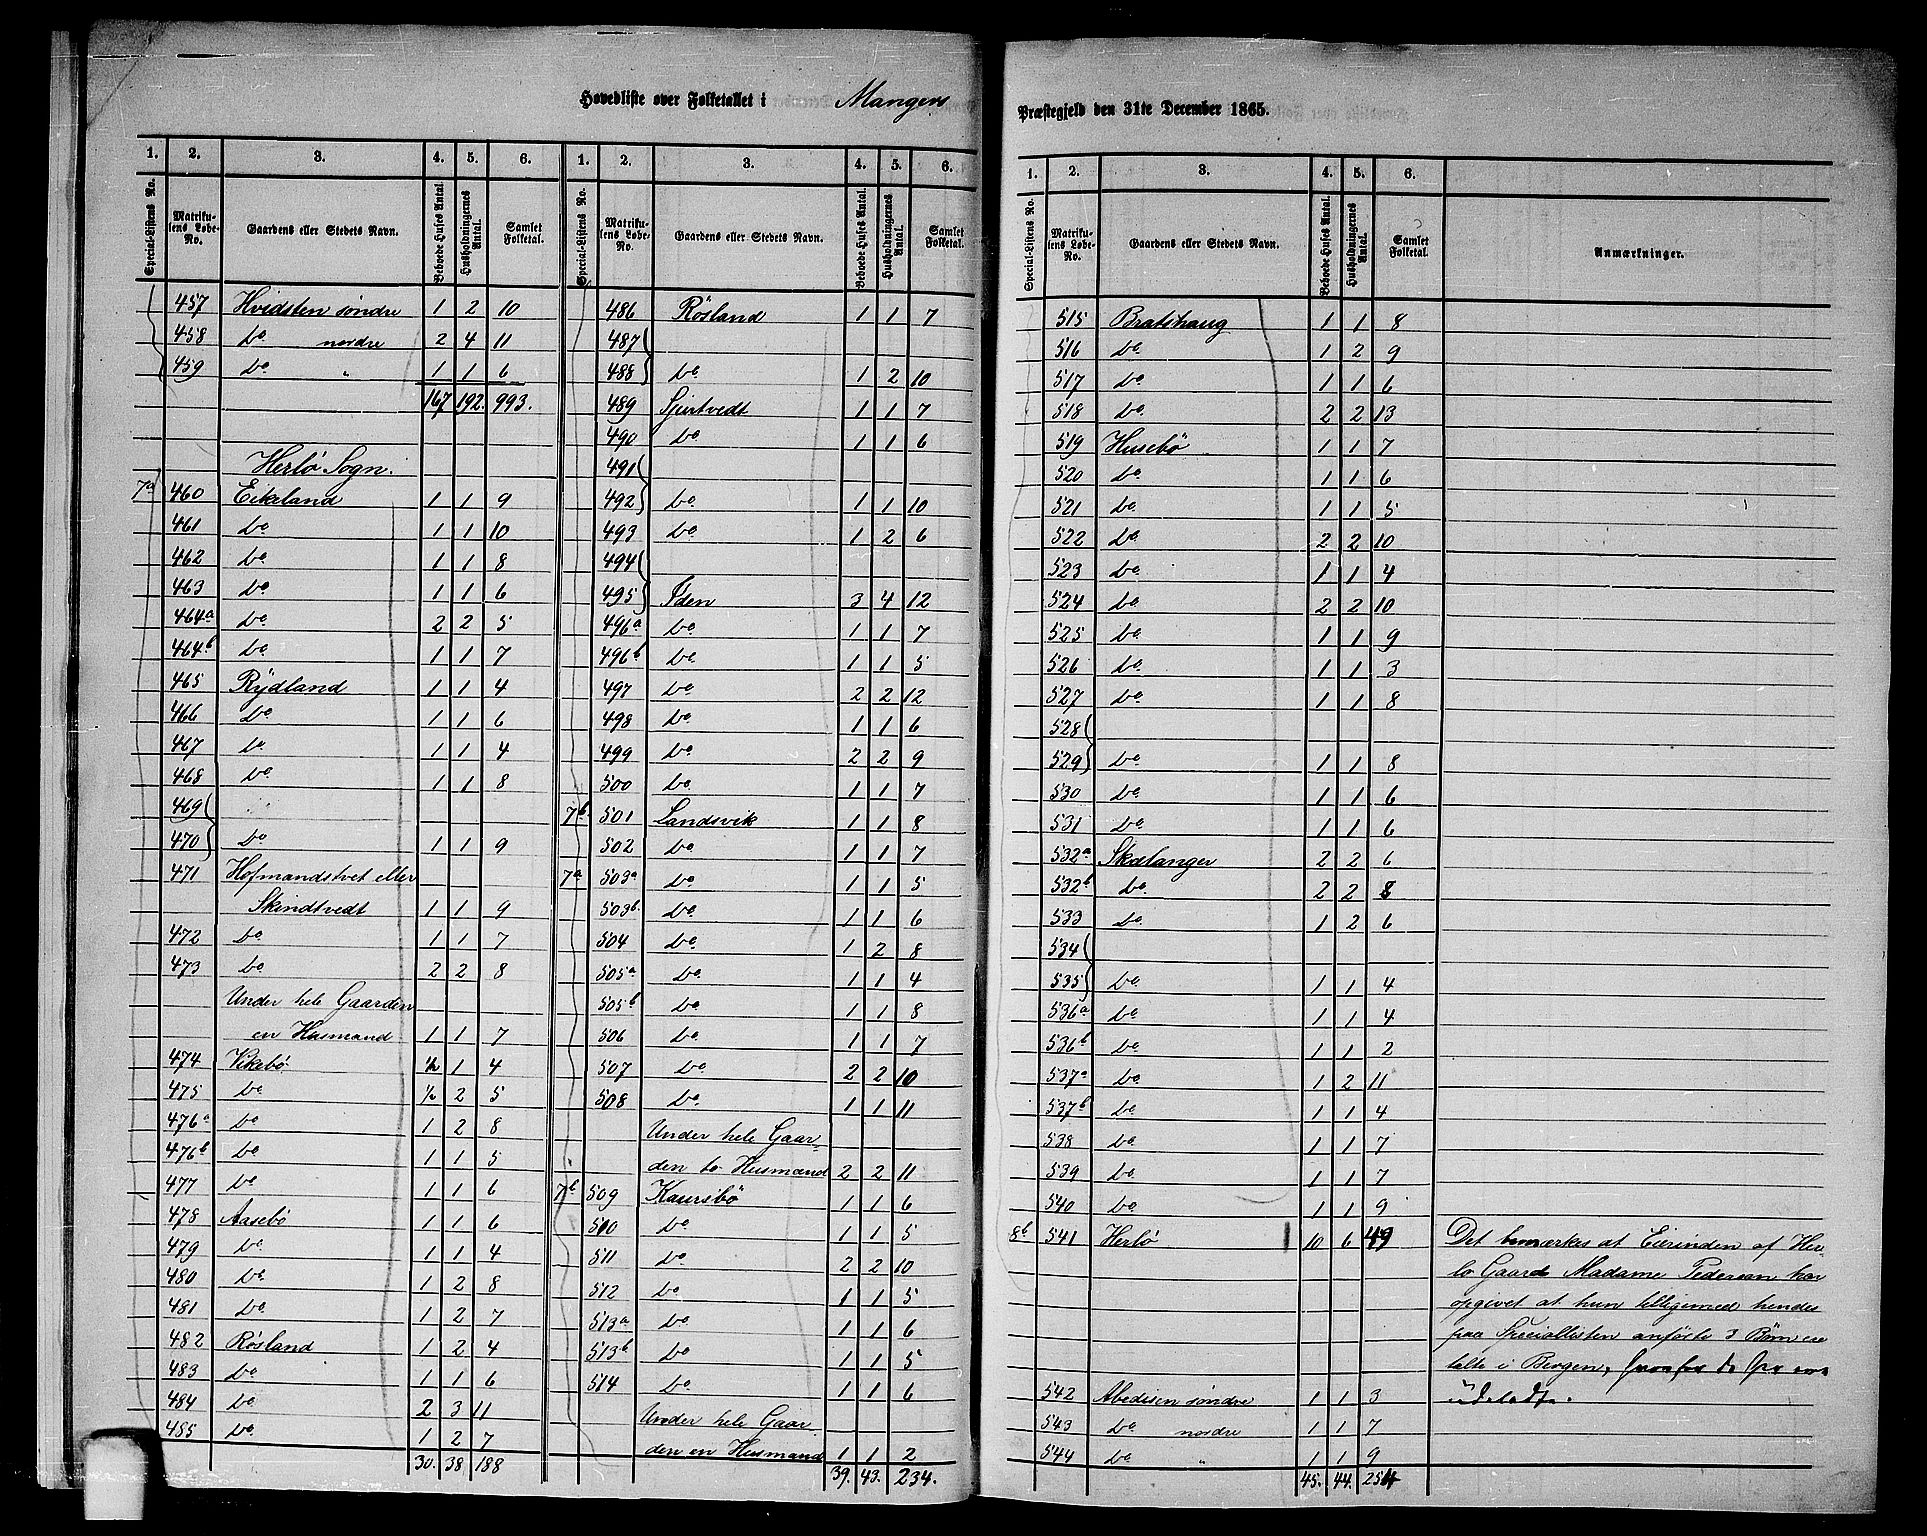 Hovedliste over Folketallet i Manger
Præstegjeld den 31te December 1865.
1. 2. 3. 4. 5. 6.
Special-Listens No. Matrikulens Løbe-No. Gaardens eller Stedets Navn. Beboede Huses Antal. Husholdningernes Antal. Samlet Folketal.
457 Hvidsten søndre 1 2 10
458 Do nordre 2 4 11
459 Do " 1 1 6
167 192. 993.
Herlö Sogn.
7a 460 Eikeland 1 1 9
461 Do 1 1 10
462 Do 1 1 8
463 Do 1 1 6
464a Do 2 2 5
464b Do 1 1 7
465 Rydland 1 1 4
466 Do 1 1 6
467 Do 1 1 4
468 Do 1 1 8
469
470 Do 1 1 9
471 Hofmandstvet eller
Skindtvedt 1 1 9
472 Do 1 1 7
473 Do 2 2 8
Under hele Gaarden
en Husmand 1 1 7
474 Vikebö 1/2 1 4
475 Do 1/2 2 5
476a Do 1 2 8
476b Do 1 1 5
477 Do 1 1 6
478 Aasebö 1 1 6
479 Do 1 1 4
480 Do 1 2 8
481 Do 1 2 7
482 Rösland 1 2 4
483 Do 1 1 6
484 Do 2 3 11
485 Do 1 2 7
30. 38. 188
1. 2. 3. 4. 5. 6.
Special-Listens No. Matrikulens Løbe-No. Gaardens eller Stedets Navn. Beboede Huses Antal. Husholdningernes Antal. Samlet Folketal.
486 Rösland 1 1 7
487
488 Do 1 2 10
489 Gjertvedt 1 1 7
490 Do 1 1 6
491
492 Do 1 1 10
493 Do 1 2 6
494
495 Iden 3 4 12
496a Do 1 1 7
496b Do 1 1 5
497 Do 2 2 12
498 Do 1 1 6
499 Do 2 2 9
500 Do 1 1 7
7b. 501 Landsvik 1 1 8
502 Do 1 1 7
7a 503a Do 1 1 5
503b. Do 1 1 6
504 Do 1 2 8
505a Do 1 1 4
505b Do 1 1 8
506 Do 1 1 7
507 Do 2 2 10
508 Do 1 1 11
Under hele Gaar-
den to Husmænd 2 2 11
7b 509 Kaursbö 1 1 6
510 Do 1 1 5
511 Do 2 2 10
512 Do 1 1 5
513a Do 1 1 6
513b Do 1 1 5
514 Do 1 1 6
Under hele Gaar
den en Husmand 1 1 2
39. 43. 234.
1. 2. 3. 4. 5. 6.
Special-Listens No. Matrikulens Løbe-No. Gaardens eller Stedets Navn. Beboede Huses Antal. Husholdningernes Antal. Samlet Folketal. Anmærkninger.
515 Bratshaug 1 1 8
516 Do 1 2 9
517 Do 1 1 6
518 Do 2 2 13
519 Husebö 1 1 7
520 Do 1 1 6
521 Do 1 1 5
522 Do 2 2 10
523 Do 1 1 4
524 Do 2 2 10
525 Do 1 1 9
526 Do 1 1 3
527 Do 1 1 8
528
529 Do 1 1 8
530 Do 1 1 6
531 Do 1 1 6
532a Skælanger 2 2 6
532b Do 2 2 8
533 Do 1 2 6
534
535 Do 1 1 4
536a Do 1 1 4
536b Do 1 1 2
537a Do 1 2 11
537b Do 1 1 4
538 Do 1 1 7
539 Do 1 1 7
540 Do 1 1 9
8b 541 Herlö 10 6 49 Det bemærkes at Eierinden af Her-
lö Gaard Madame Pedersen har
opgivet at hun tilligemed hendes
paa Speciallisten anförte 3 Börn ere
talte i Bergen, hvorfor de her ere
udeladte.
542 Abedisen søndre 1 1 3
543 Do nordre 1 1 7
544 Do " 1 1 9
45. 44. 254